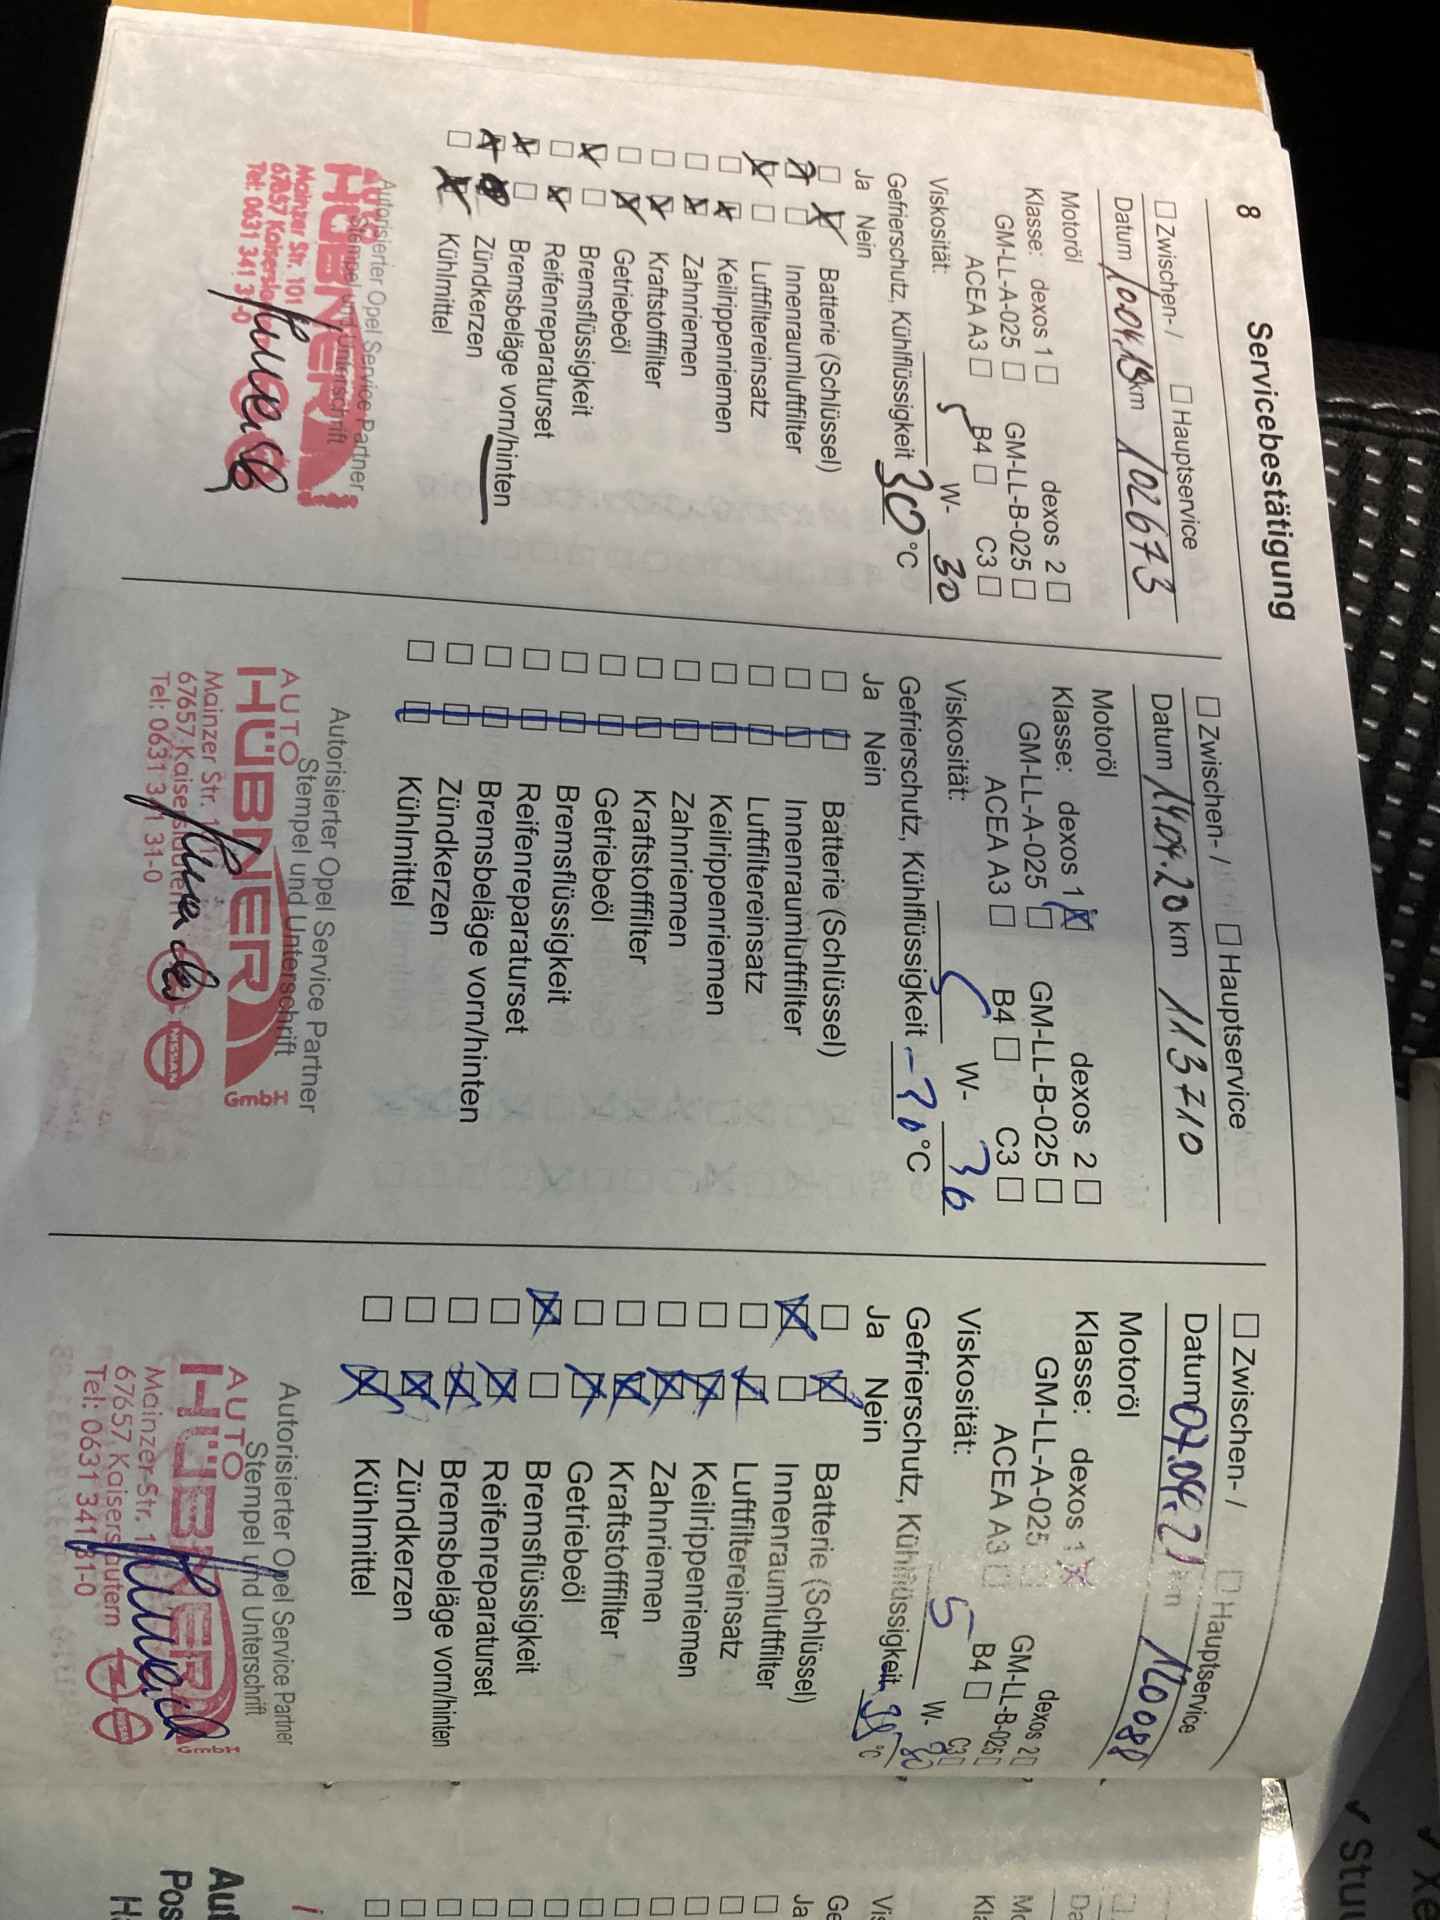 8
Servicebestätigung
Zwischen- / Hauptservice
Datum 10.04.19 km 102673
Motoröl
Klasse: dexos 1 dexos 2
GM-LL-A-025 GM-LL-B-025
ACEA A3 B4 C3
Viskosität: 5 W- 30
Gefrierschutz, Kühlflüssigkeit 30 °C
Ja Nein
Batterie (Schlüssel)
Innenraumluftfilter
Luftfiltereinsatz
Keilrippenriemen
Zahnriemen
Kraftstofffilter
Getriebeöl
Bremsflüssigkeit
Reifenreparaturset
Bremsbeläge vorn/hinten
Zündkerzen
Kühlmittel
Autorisierter Opel Service Partner
Stempel und Unterschrift
HÜBNER
Mainzer Str. 101
67657 Kaisersl
Tel: 0631 341 31-0
Zwischen- / Hauptservice
Datum 14.04.20 km 113710
Motoröl
Klasse: dexos 1 dexos 2
GM-LL-A-025 GM-LL-B-025
ACEA A3 B4 C3
Viskosität: W- 30
Gefrierschutz, Kühlflüssigkeit °C
Ja Nein
Batterie (Schlüssel)
Innenraumluftfilter
Luftfiltereinsatz
Keilrippenriemen
Zahnriemen
Kraftstofffilter
Getriebeöl
Bremsflüssigkeit
Reifenreparaturset
Bremsbeläge vorn/hinten
Zündkerzen
Kühlmittel
Autorisierter Opel Service Partner
Stempel und Unterschrift
AUTO
HÜBNER
GmbH
Mainzer Str.
67657 Kaiserslautern
Tel: 0631 341 31-0
NISSAN
Zwischen- / Hauptservice
Datum 07.04.21 km 120088
Motoröl
Klasse: dexos 1 dexos 2
GM-LL-A-025 GM-LL-B-025
ACEA A3 B4 C3
Viskosität: 5 W- 30
Gefrierschutz, Kühlflüssigkeit °C
Ja Nein
Batterie (Schlüssel)
Innenraumluftfilter
Luftfiltereinsatz
Keilrippenriemen
Zahnriemen
Kraftstofffilter
Getriebeöl
Bremsflüssigkeit
Reifenreparaturset
Bremsbeläge vorn/hinten
Zündkerzen
Kühlmittel
Autorisierter Opel Service Partner
Stempel und Unterschrift
AUTO
HÜBNER
GmbH
Mainzer Str.
67657 Kaiserslautern
Tel: 0631 341 31-0
Da
Mo
Kla
Vis
Ge
Ja
Aut
Pos